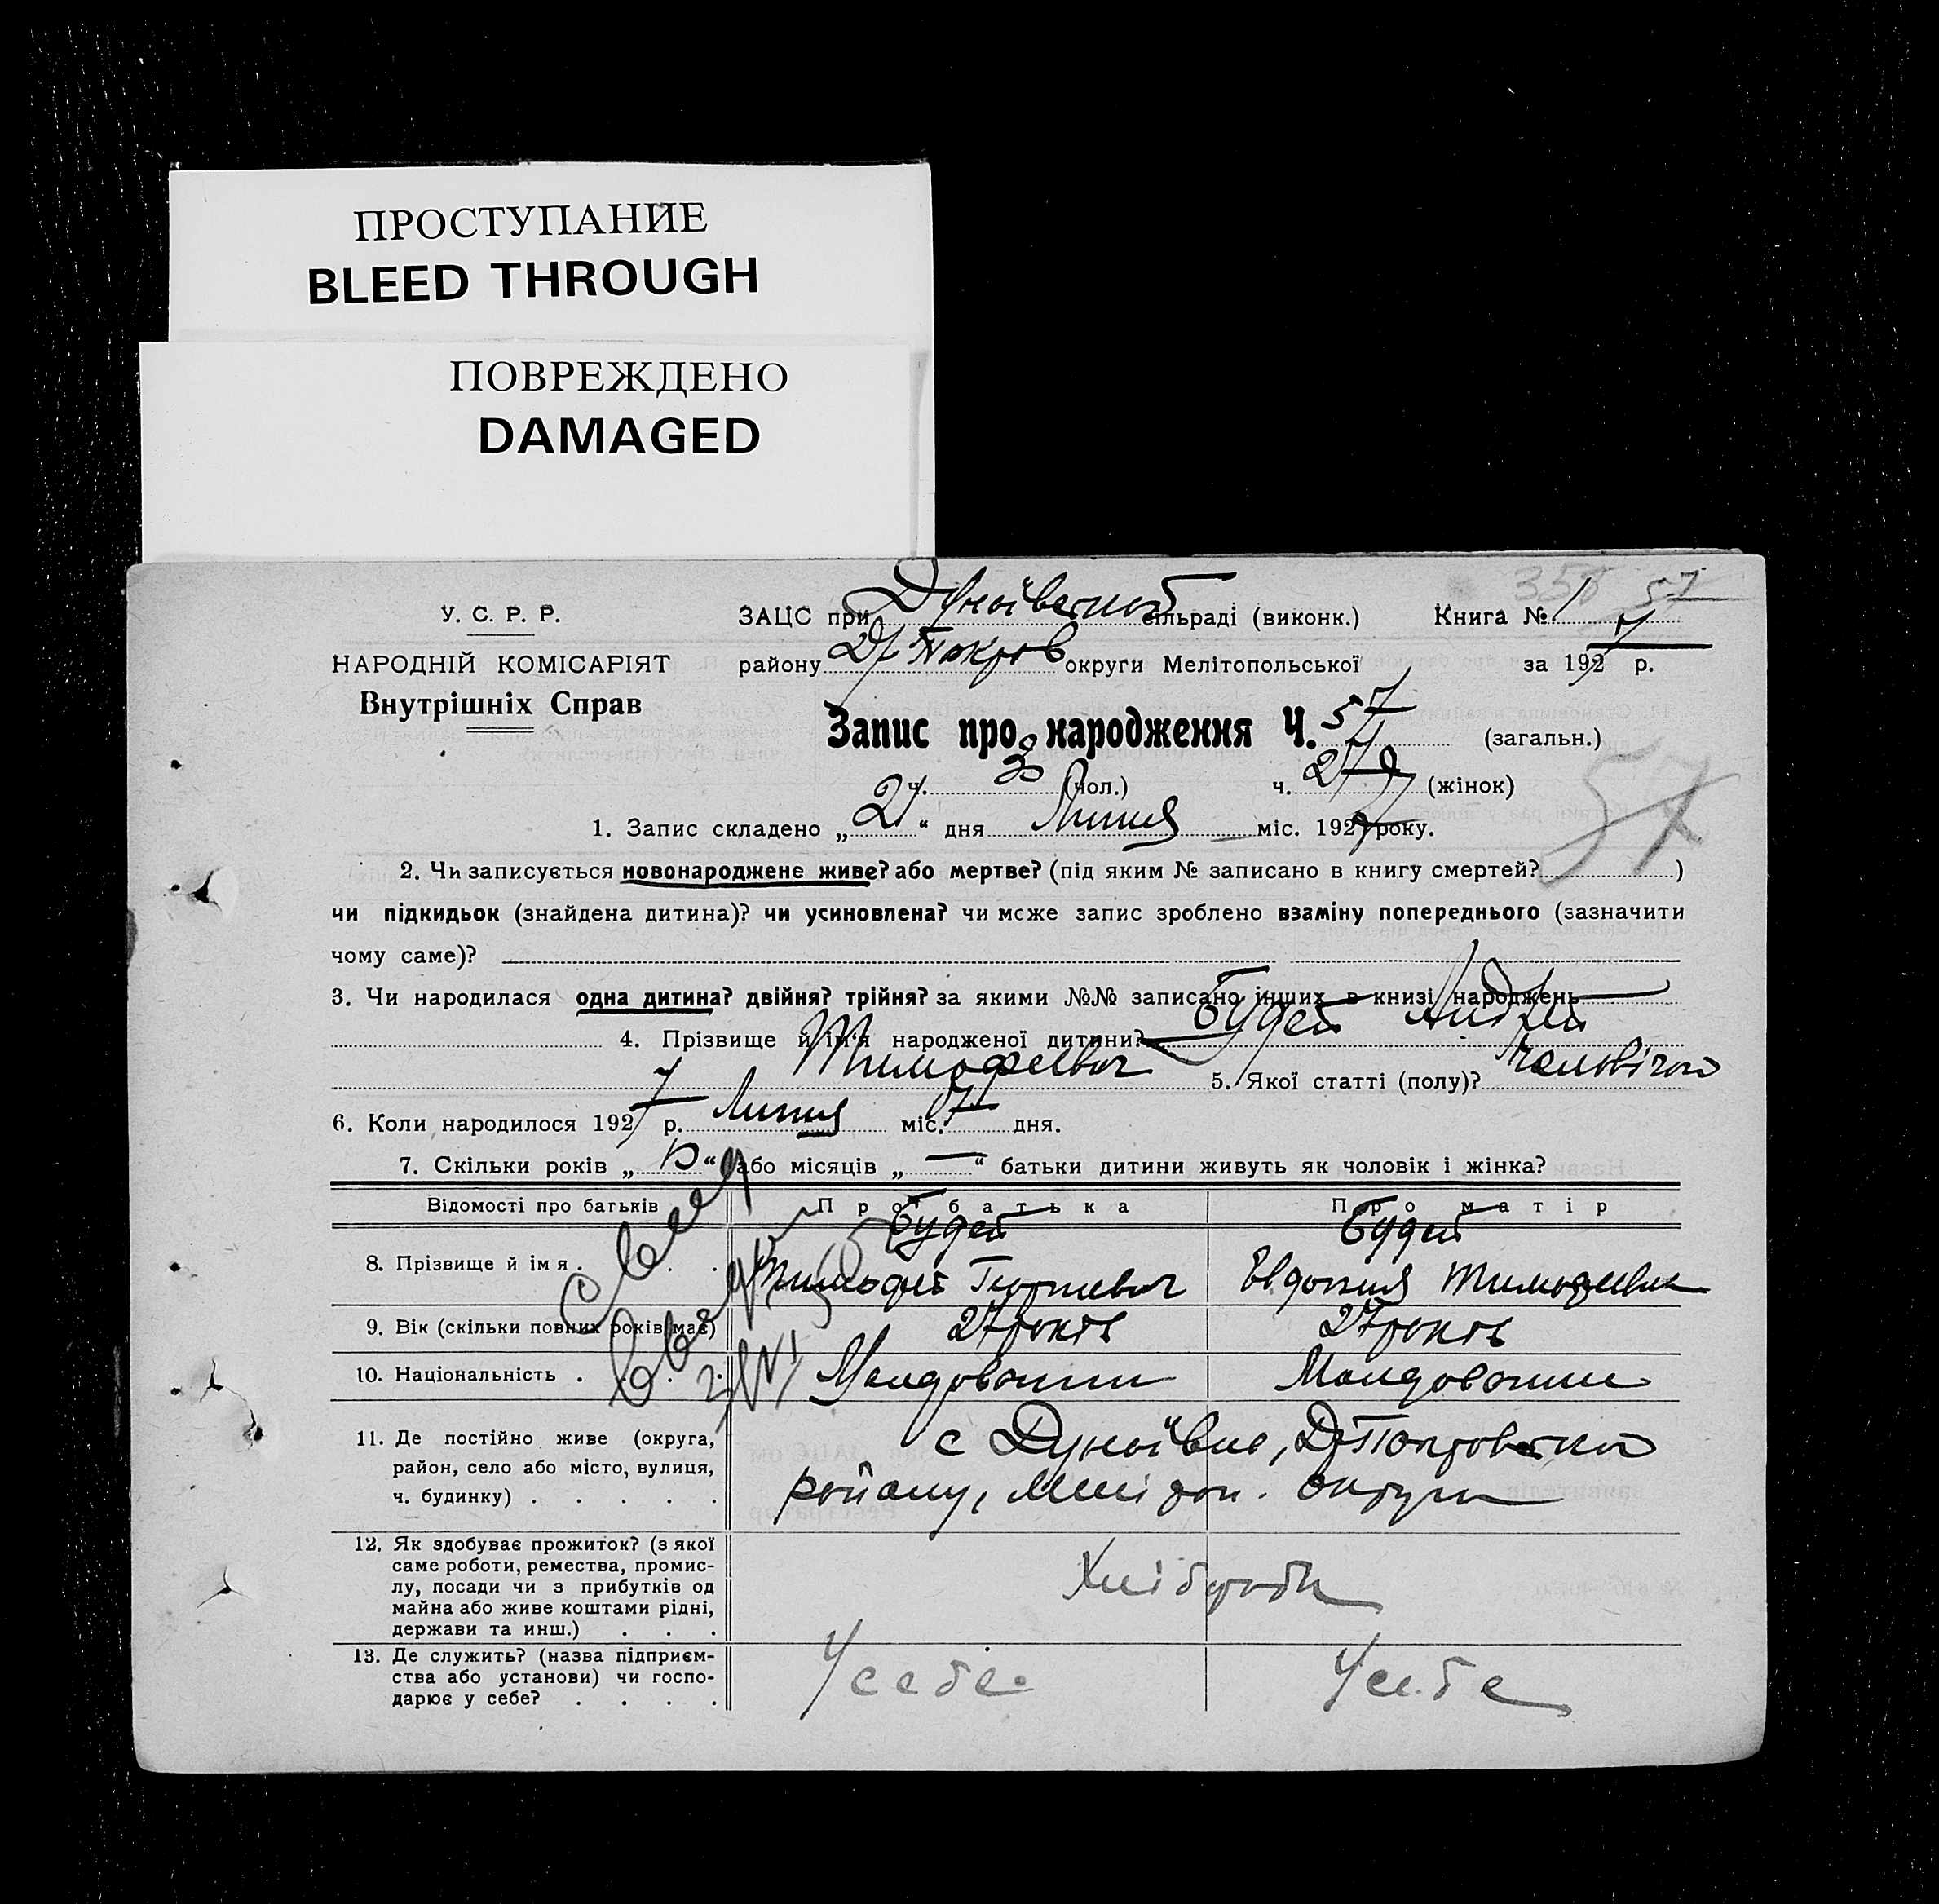 ПРОСТУПАНИЕ
BLEED THROUGH
ПОВРЕЖДЕНО
DAMAGED
У. С. Р. Р.
НАРОДНІЙ КОМІСАРІЯТ
Внутрішніх Справ
ЗАЦС при Дунаївській сільраді (виконк.) Книга № 1
району Д/Покров округи Мелітопольської за 1927 р.
Запис про народження Ч. 57 (загальн.)
57
ч. 30 (чол.) ч. (жінок)
1. Запис складено „21“ дня Липня міс. 1927 року.
2. Чи записується новонароджене живе? або мертве? (під яким № записано в книгу смертей? )
чи підкидьок (знайдена дитина)? чи усиновлена? чи може запис зроблено взаміну попереднього (зазначити
чому саме)?
3. Чи народилася одна дитина? двійня? трійня? за якими №№ записано інших в книзі народжень
4. Прізвище й ім'я народженої дитини? Будей Андрей
Тимофеевич 5. Якої статті (полу)? чоловічої
6. Коли народилося 1927 р. Липня міс. дня.
7. Скільки років „ “ або місяців „—“ батьки дитини живуть як чоловік і жінка?
Відомості про батьків Про батька Про матір
8. Прізвище й імя . Будей Тимофей Георгиевич Будей Евдокия Тимофеевна
9. Вік (скільки повних років має) 27 років 27 років
10. Національність . Молдования Молдования
11. Де постійно живе (округа,
район, село або місто, вулиця,
ч. будинку) .
с Дунаївка, Д/Покровского
району, Мелітоп. округи
12. Як здобуває прожиток? (з якої
саме роботи, ремества, промис-
лу, посади чи з прибутків од
майна або живе коштами рідні,
держави та инш.) .
Хлібороби
13. Де служить? (назва підприєм-
ства або установи) чи госпо-
дарює у себе? .
У себе. У себе